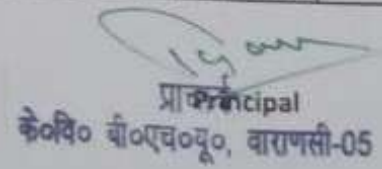 Principal
के०वि० बी०एच०यू०, वाराणसी-05